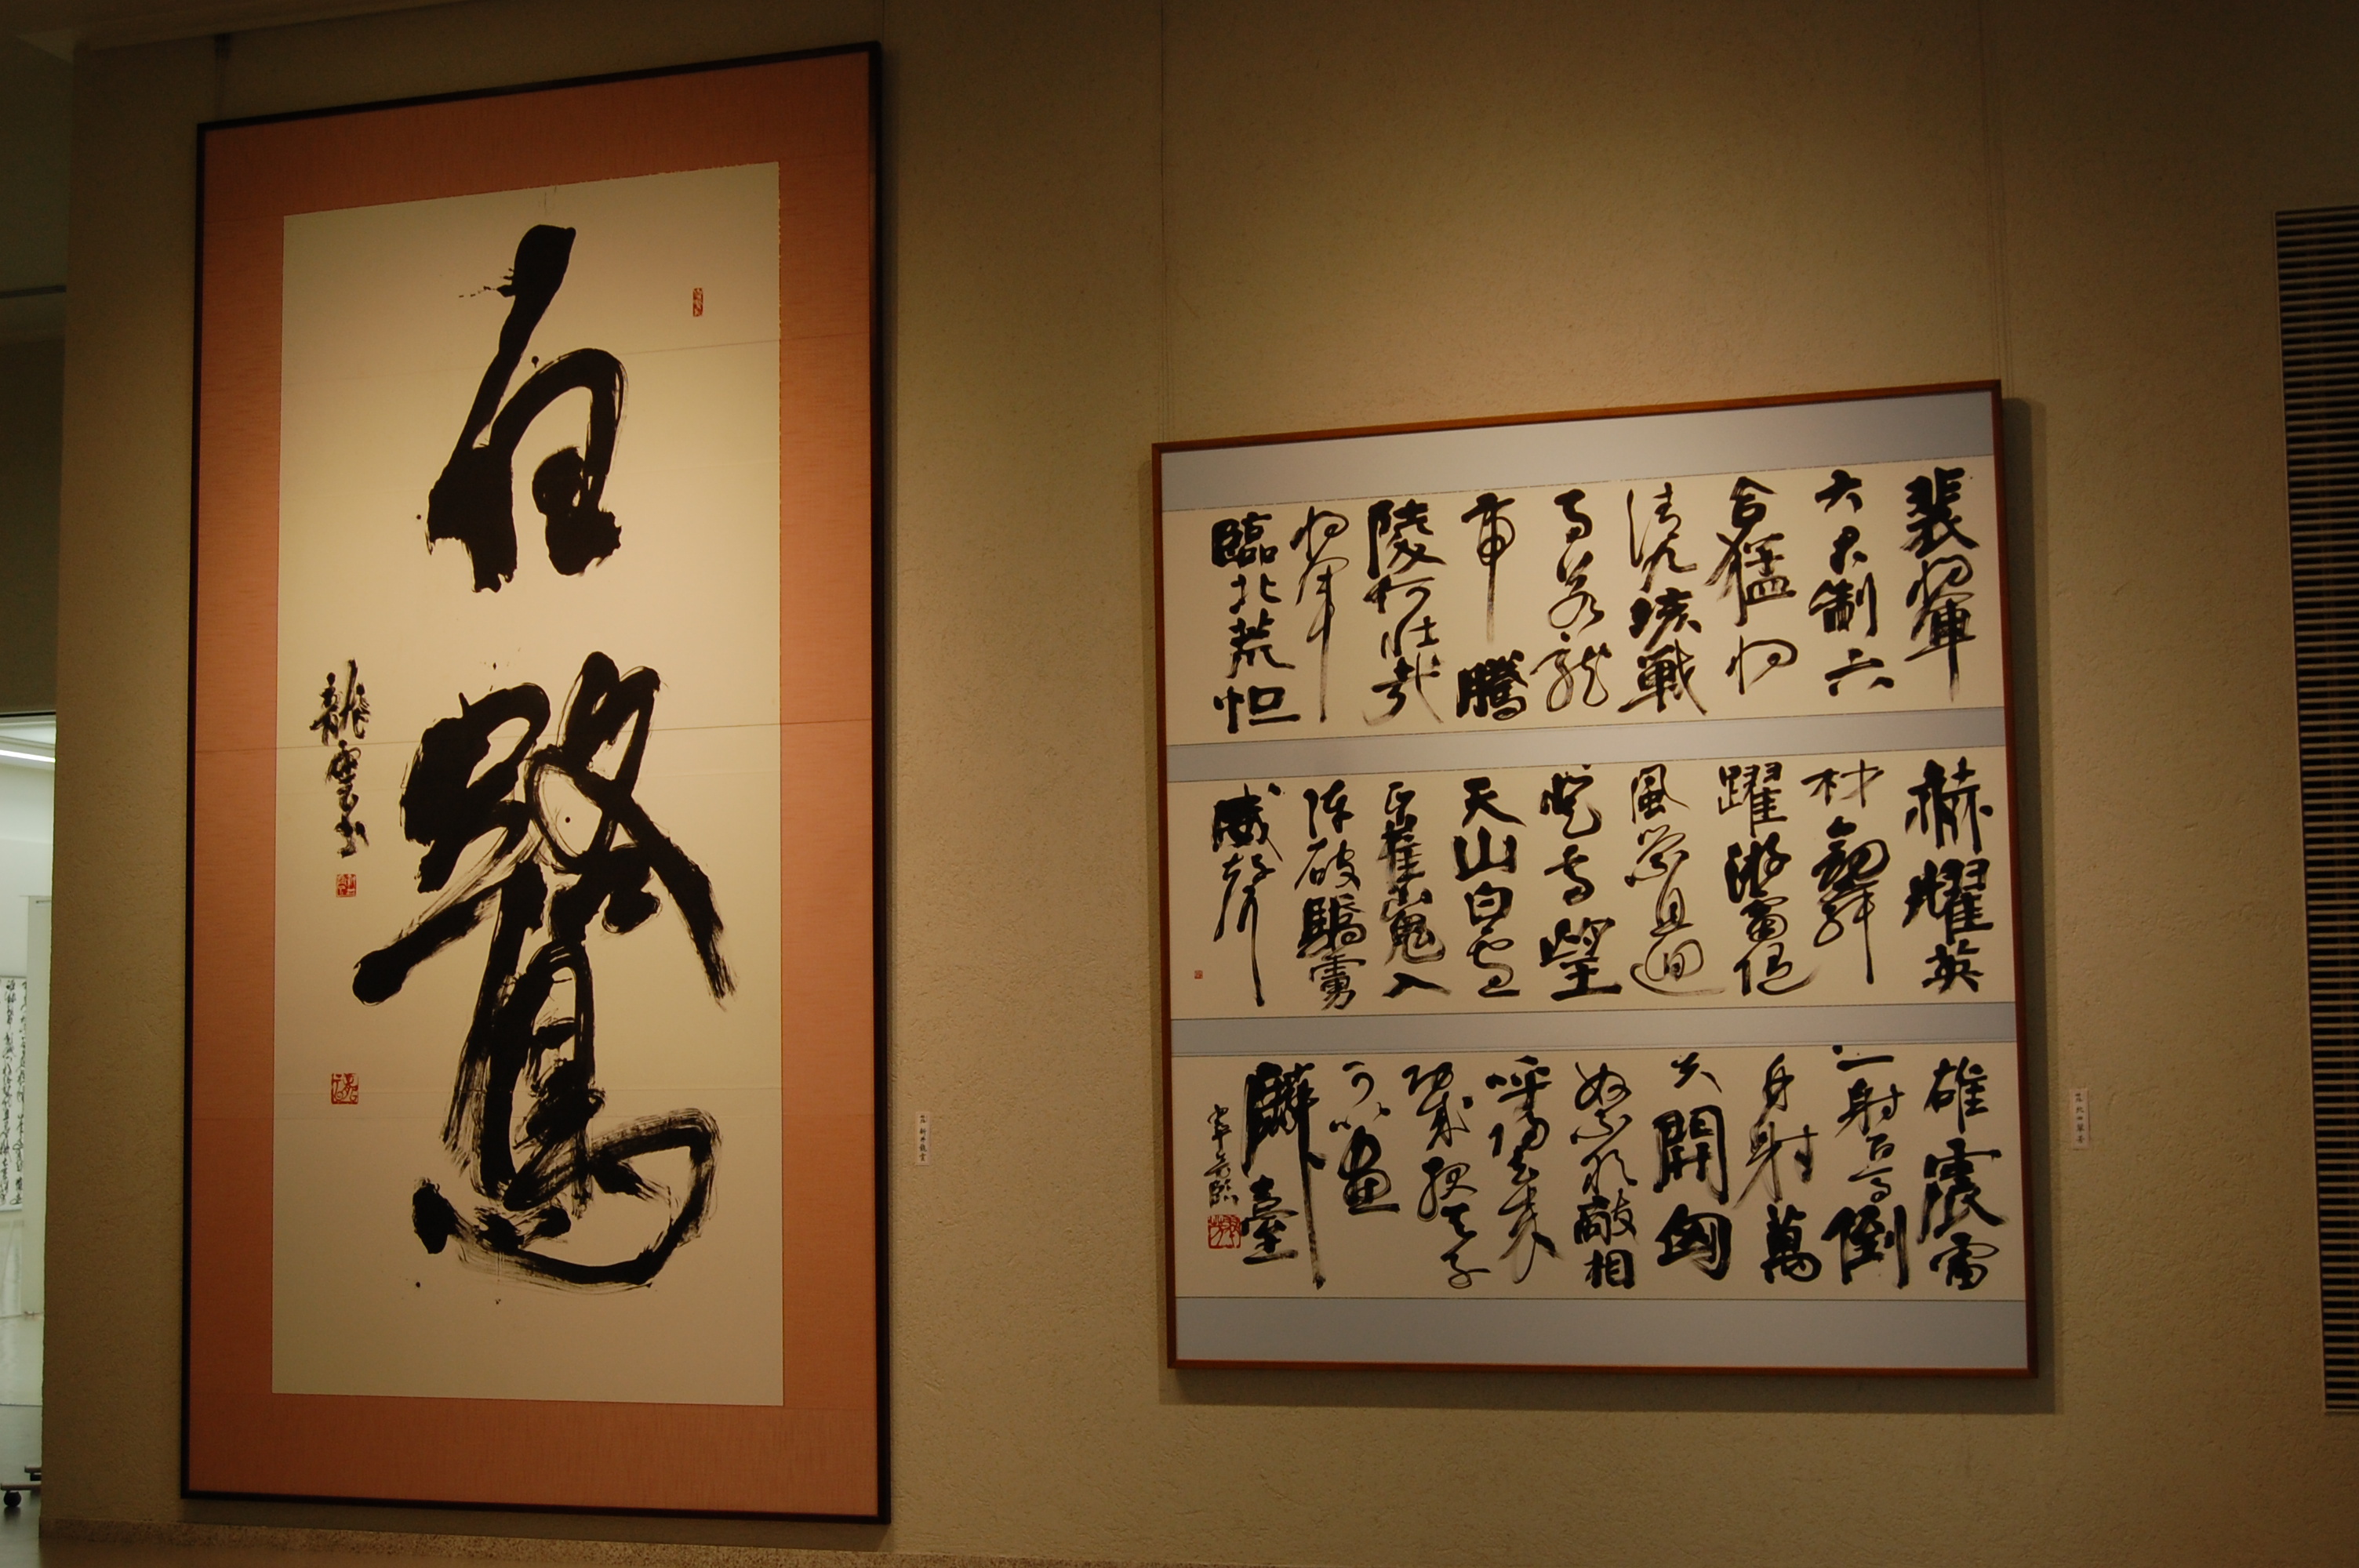 白
鷺
龍雲書
裴將軍
大君制六
合猛將
清九垓戰
馬若龍
虎騰
陵何壯哉
將軍
臨北荒恒
赫耀英
材劍舞
躍游電隨
風縈且迴
登高望
天山白雲
正崔嵬入
陣破驕虜
威聲
雄震雷
一射百馬倒
再射萬
夫開匈
奴不敢敵相
呼歸去來
功成報天子
可以畫
麟臺